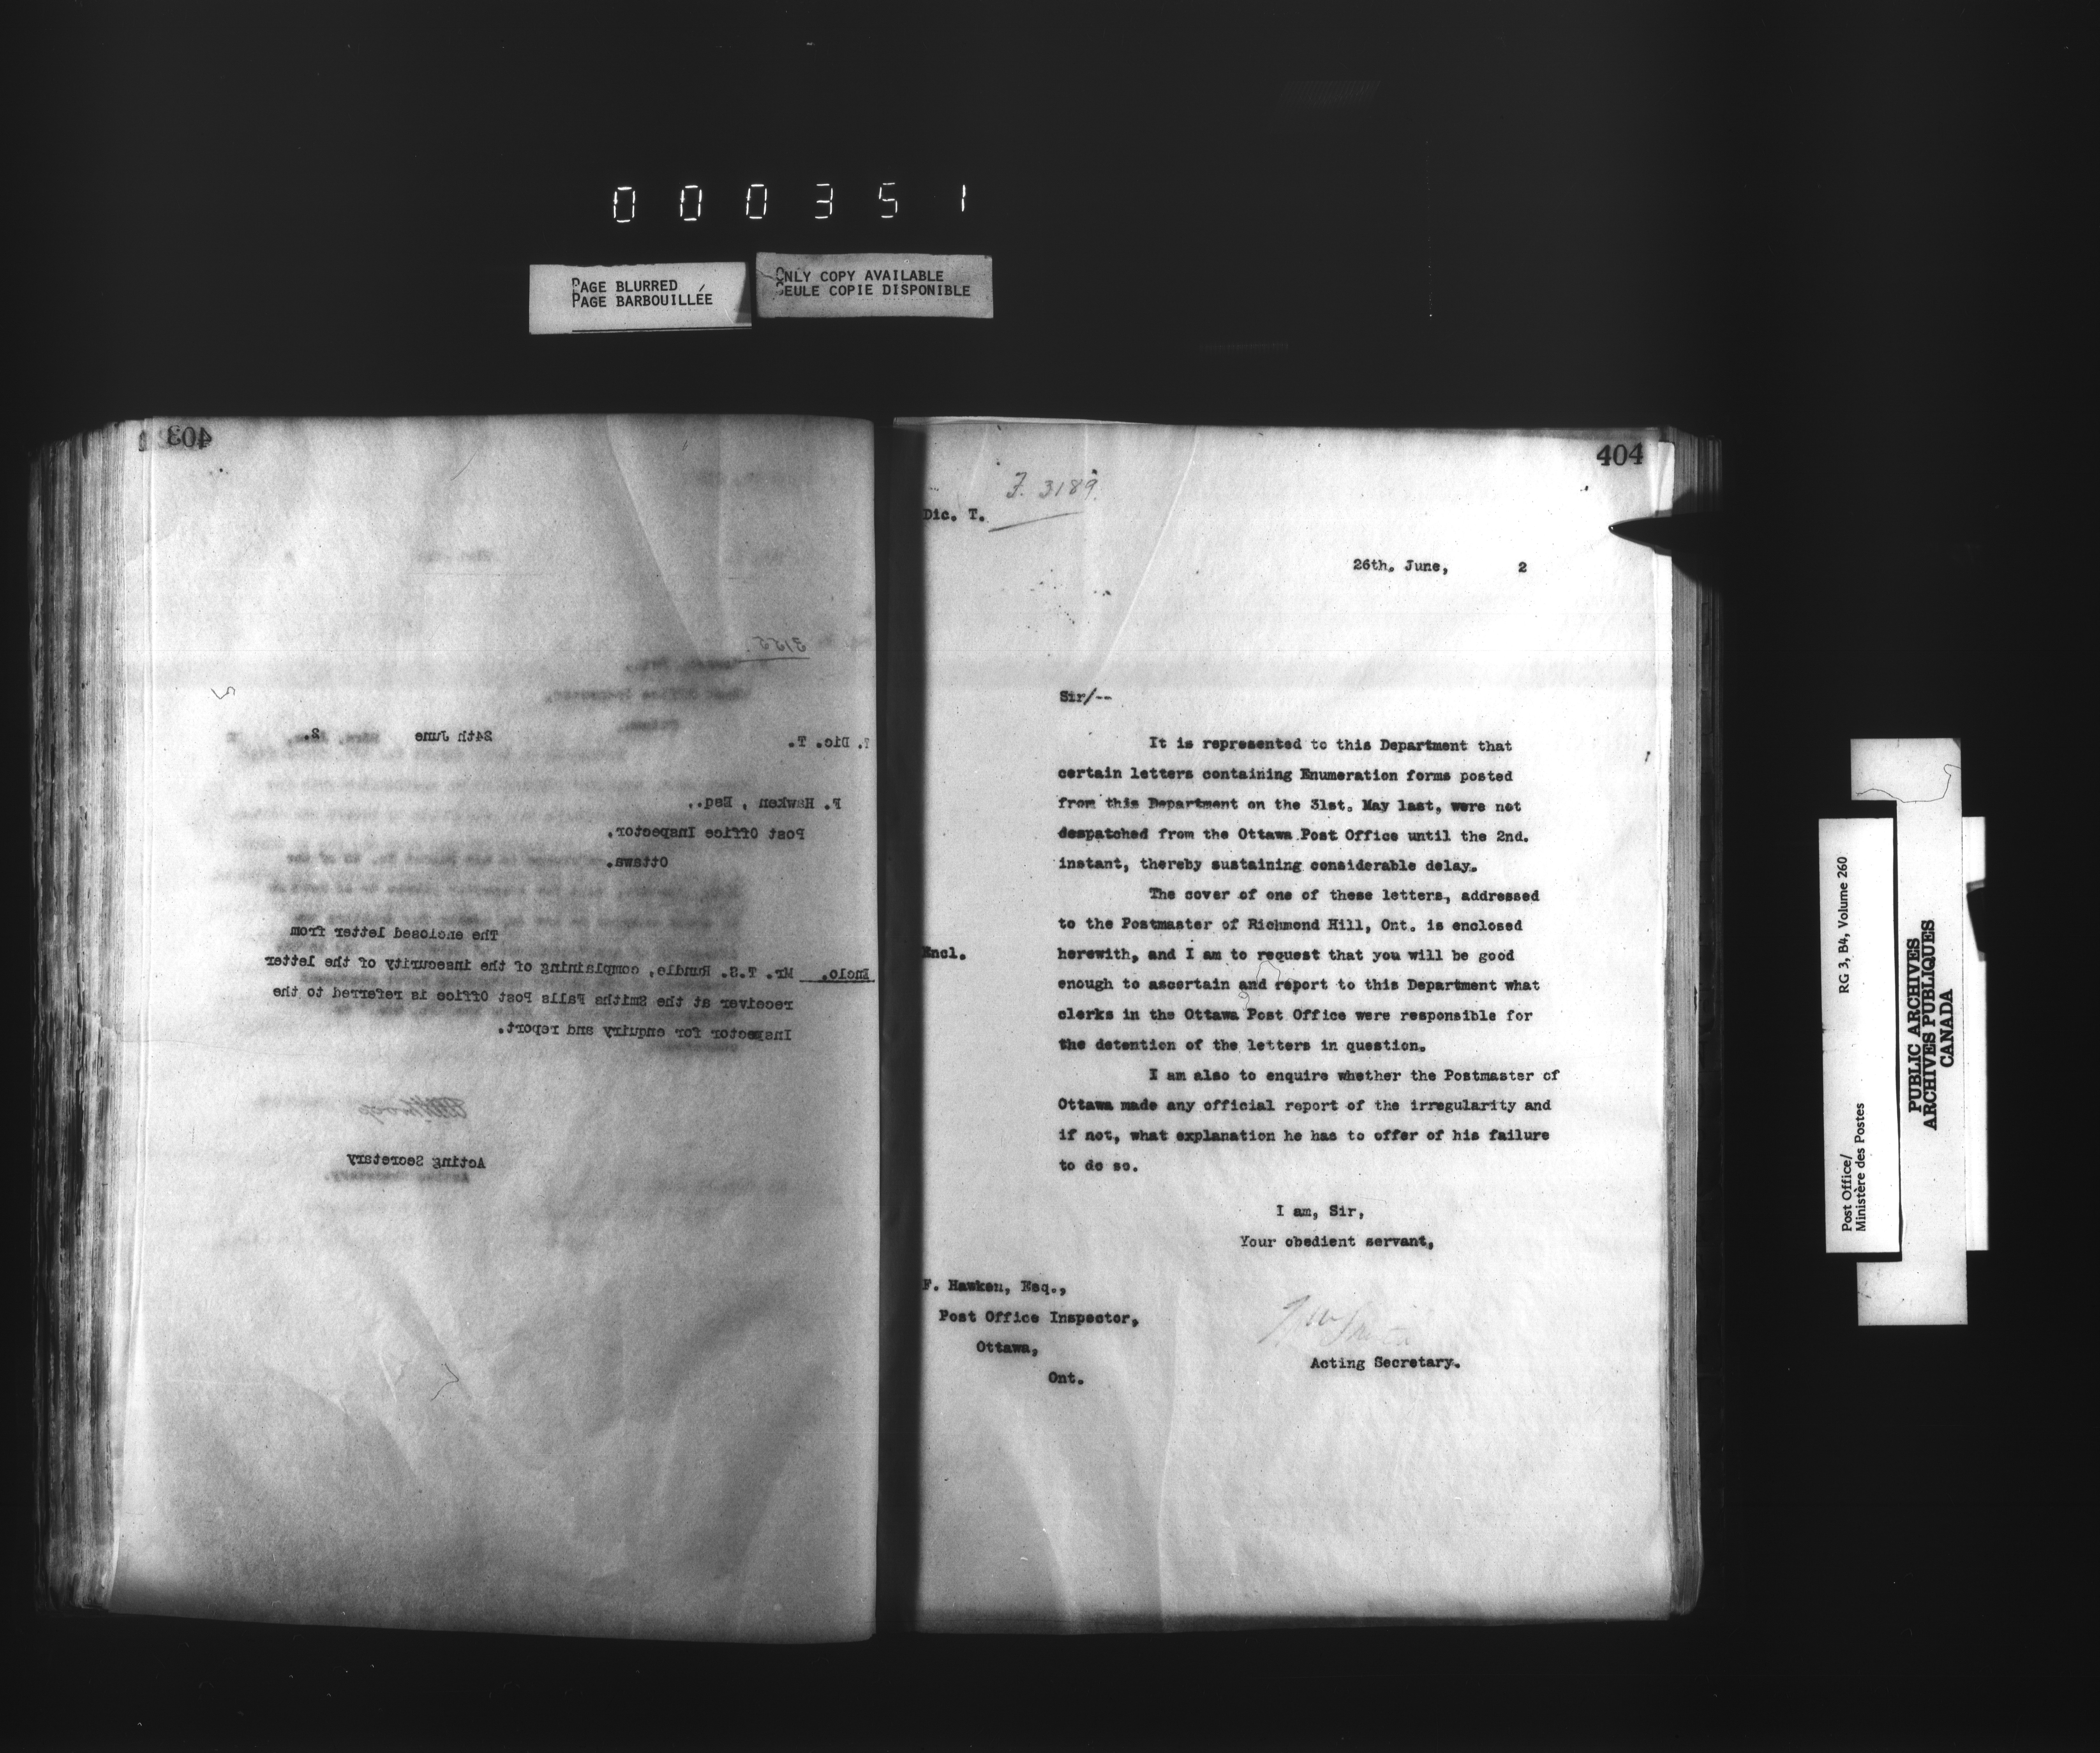 000351
PAGE BLURRED
PAGE BARBOUILLÉE
ONLY COPY AVAILABLE
SEULE COPIE DISPONIBLE
403
3155.
Dic. T.
24th June
2.
F. Hawken , Esq.,
Post Office Inspector.
Ottawa.
The enclosed letter from
Enclo. Mr. T.S. Rundle, complaining of the insecurity of the letter
receiver at the Smiths Falls Post Office is referred to the
Inspector for enquiry and report.
Acting Secretary
404
F. 3189.
Dic. T.
26th. June, 2
Sir/--
It is represented to this Department that
certain letters containing Enumeration forms posted
from this Department on the 31st. May last, were not
despatched from the Ottawa Post Office until the 2nd.
instant, thereby sustaining considerable delay.
The cover of one of these letters, addressed
to the Postmaster of Richmond Hill, Ont. is enclosed
Encl. herewith, and I am to request that you will be good
enough to ascertain and report to this Department what
clerks in the Ottawa Post Office were responsible for
the detention of the letters in question.
I am also to enquire whether the Postmaster of
Ottawa made any official report of the irregularity and
if not, what explanation he has to offer of his failure
to do so.
I am, Sir,
Your obedient servant,
F. Hawken, Esq.,
Post Office Inspector,
Ottawa,
Ont.
Acting Secretary.
Post Office/
Ministère des Postes
RG 3, B4, Volume 260
PUBLIC ARCHIVES
ARCHIVES PUBLIQUES
CANADA